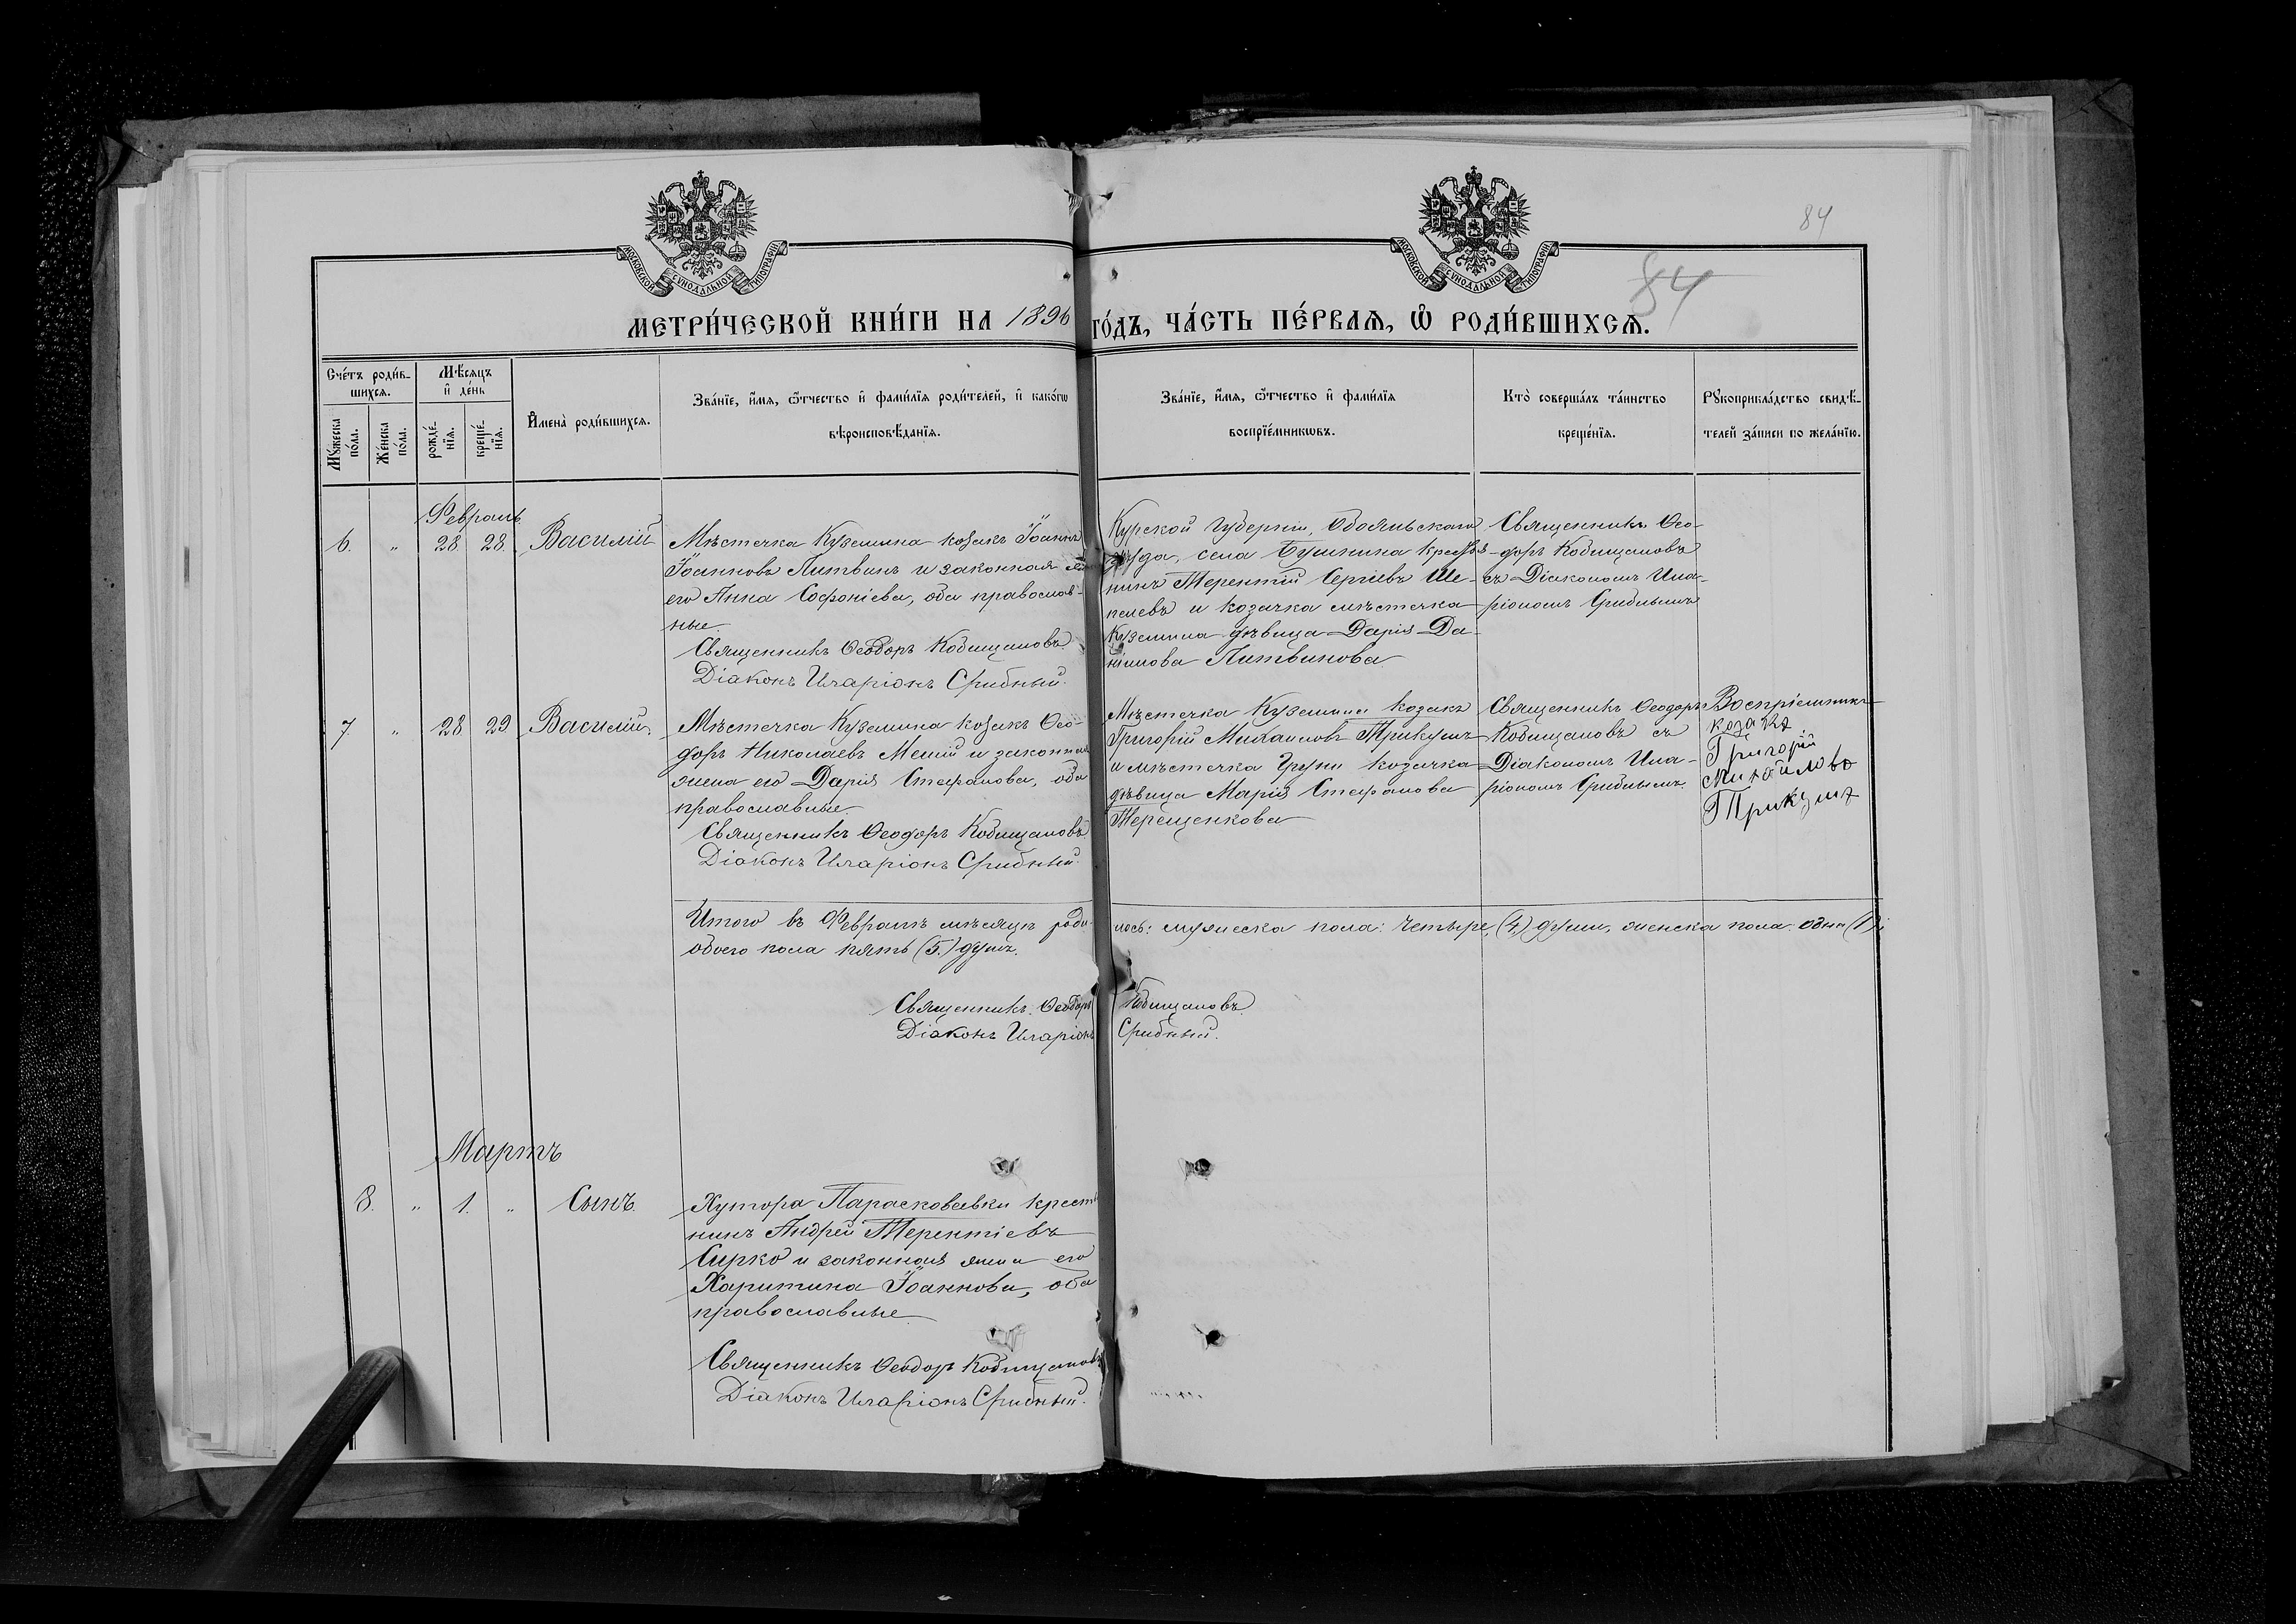 84
84
МОСКОВСКОЙ СѴНОДАЛЬНОЙ ТИПОГРАФІИ
МОСКОВСКОЙ СѴНОДАЛЬНОЙ ТИПОГРАФІИ
МЕТРИ́ЧЕСКОЙ КНИ́ГИ НА 1896 ГО́ДЪ, ЧА́СТЬ ПЕ́РВАѦ, Ѡ҆ РОДИ́ВШИХСѦ.
Сче́тъ роди́в-
шихсѧ.
Мꙋ́жеска по́ла.
Же́нска по́ла.
Мѣ́сѧцъ
и҆ де́нь
рожде́-
нїѧ.
креще́-
нїѧ.
И҆мена̀ роди́вшихсѧ.
Зва́нїе, и҆́мѧ, ѻ҆́тчество и҆ фамн́лїѧ роди́телей, и҆ како́гѡ
вѣроисповѣ́данїѧ.
Зва́нїе, и҆́мѧ, ѻ҆́тчество и҆ фами́лїѧ
воспрїе́мникѡвъ.
Кто̀ соверша́лъ та́инство
креще́нїѧ.
Рꙋкоприкла́дство свидѣ́-
телей за́писи по жела́нїю.
Февраль
6. „ 28 28 Василій
Мѣстечка Куземина козакъ Іоаннъ
Іоанновъ Литвинъ и законная
его Анна Софоніева, оба православ-
ные.
Священникъ Ѳеодоръ Кобищановъ
Діаконъ Иларіонъ Срибный.
Курской губерніи, Обоянскаго
уѣзда, села Бушнина крестья-
нинъ Терентій Сергіевъ Ше-
пелевъ и козачка мѣстечка
Куземина дѣвица Дарія Да-
ніилова Литвинова
Священникъ Ѳео-
доръ Кобищановъ
съ Діакономъ Ила-
ріономъ Срибнымъ
7 „ 28 29 Василій.
Мѣстечка Куземина козакъ Ѳео-
доръ Николаевъ Меній и законная
жена его Дарія Стефанова, оба
православные.
Священникъ Ѳеодоръ Кобищановъ
Діаконъ Иларіонъ Срибный.
Мѣстечка Куземина козакъ
Григорій Михаиловъ Трикушъ
и мѣстечка Груни козачка
дѣвица Марія Стефанова
Терещенкова
Священникъ Ѳеодоръ
Кобищановъ съ
Діакономъ Ила-
ріономъ Срибнымъ.
Воспріемникъ
козакъ
Григорій
Михайловъ
Трикушъ
Итого въ Февралѣ мѣсяцѣ роди лось: мужеска пола: четыре (4.) души, женска пола: одна (1);
обоего пола пять (5.) душъ.
Священникъ Ѳеодоръ Кобищановъ
Діаконъ Иларіонъ Срибный.
Мартъ
8. „ 1. „ Сынъ.
Хутора Парасковеевки крестья
нинъ Андрей Терентіевъ
Сирко и законная жена его
Харитина Іоаннова, оба
православные
Священникъ Ѳеодоръ Кобищановъ
Діаконъ Иларіонъ Срибный.